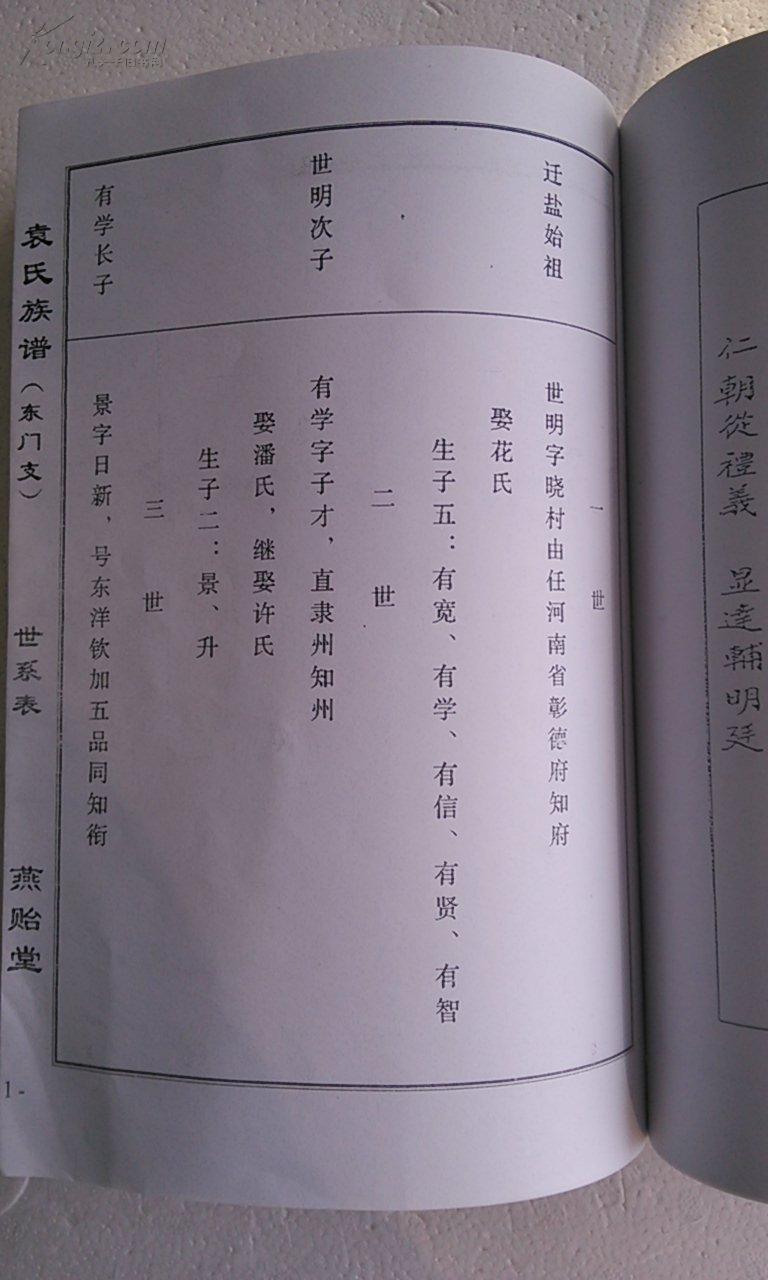 仁朝從禮義　显達輔明廷
一世
迁盐始祖
世明字晓村由任河南省彰德府知府
娶花氏
生子五：有宽、有学、有信、有贤、有智
二世
世明次子
有学字子才，直隶州知州
娶潘氏，继娶许氏
生子二：景、升
三世
有学长子
景字日新，号东洋钦加五品同知衔
袁氏族谱（东门支）　世系表　燕贻堂
1-